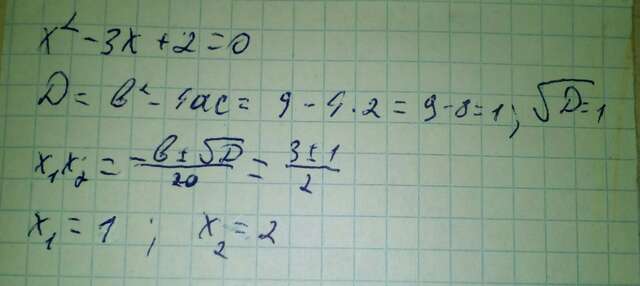 x² - 3x + 2 = 0
D = b² - 4ac = 9 - 4·2 = 9 - 8 = 1; √D = 1
x₁x₂ = (-b ± √D)/(2a) = (3 ± 1)/2
x₁ = 1; x₂ = 2